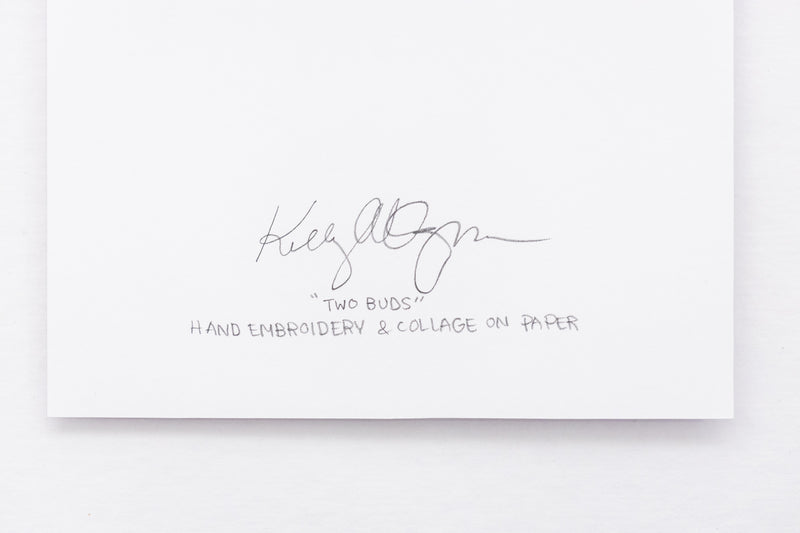 Kelly
"TWO BUDS"
HAND EMBROIDERY & COLLAGE ON PAPER